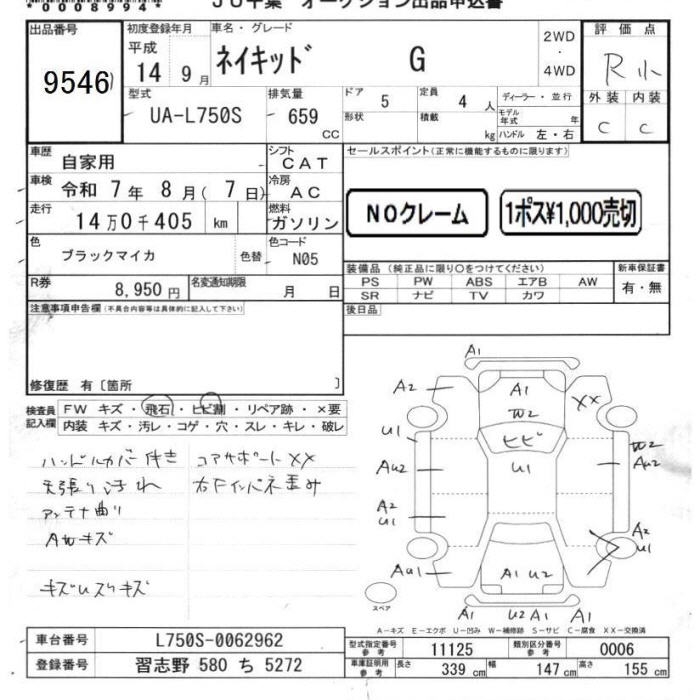 *00008994*
JU千葉 オークション出品申込書
出品番号
9546
初度登録年月
平成
14 9月
車名・グレード
ネイキッド G
2WD
・
4WD
評価点
R小
外装 内装
C C
型式
UA-L750S
排気量
659
CC
ドア 5
形状
定員 4 人
積載 kg
ディーラー・並行
モデル年式 年
ハンドル 左・右
車歴 自家用
シフト CAT
車検 令和 7年 8月( 7日)
冷房 AC
走行 14万0千405 km
燃料 ガソリン
色 ブラックマイカ 色替
色コード N05
R券 8,950円
名変通知期限 月 日
セールスポイント(正常に機能するものに限ります)
NOクレーム
1ポス¥1,000売切
装備品(純正品に限り〇をつけてください)
PS PW ABS エアB AW
SR ナビ TV カワ
新車保証書
有・無
後日品
注意事項申告欄(不具合内容等は具体的に記入して下さい)
修復歴 有〔箇所 〕
検査員記入欄
FW キズ・飛石・ヒビ割・リペア跡・×要
内装 キズ・汚レ・コゲ・穴・スレ・キレ・破レ
ハンドルカバー付き コアサポートXX
天張り汚れ 右Fインパネ歪み
アンテナ曲り
AWキズ
キズUズリキズ
A1
A2 A1 XX
W2
U1 ヒビ W2
AU2 U1 AU2
A2
U1
A2
U1
AU1 A1 U2
U2 A1 A1
スペア
A-キズ E-エクボ U-凹み W-補修跡 S-サビ C-腐食 XX-交換済
車台番号 L750S-0062962
登録番号 習志野 580 ち 5272
型式指定番号 参考 11125
類別区分番号 参考 0006
車庫証明用 参考 長さ 339 cm 幅 147 cm 高さ 155 cm